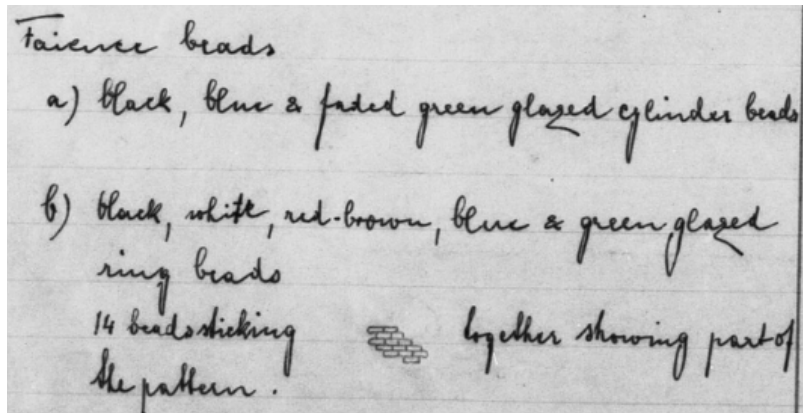 Faience beads
a) black, blue & faded green glazed cylinder beads
b) black, white, red-brown, blue & green glazed
ring beads
14 beads sticking together showing part of
the pattern.